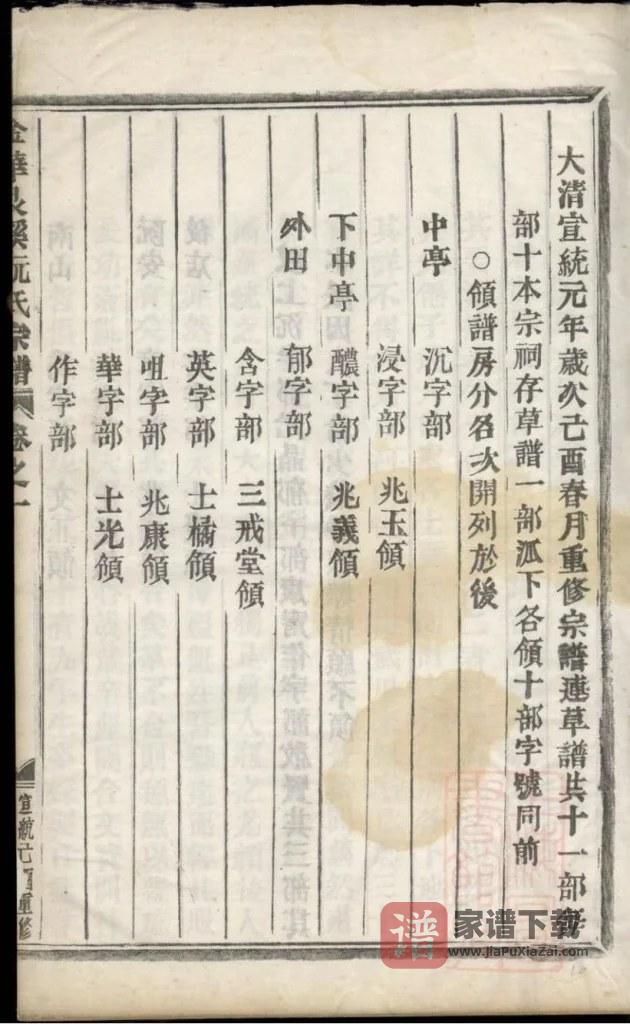 大清宣統元年歲次己酉春月重修宗譜連草譜共十一部每
部十本宗祠存草譜一部派下各領十部字號同前
○領譜房分名次開列於後
中亭 沉字部
浸字部 兆玉領
下中亭 醲字部 兆義領
外田 郁字部
含字部 三戒堂領
英字部 士橘領
咀字部 兆康領
華字部 士光領
作字部
金華 溪阮氏宗譜 卷之一 宣統己酉重修
譜 家谱下载
www.JiaPuXiaZai.com